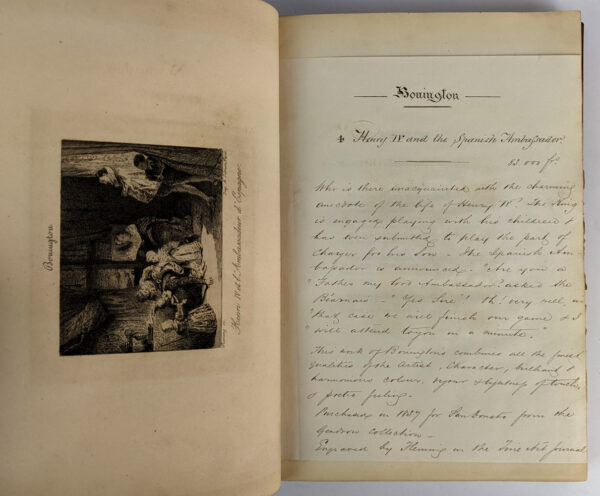 Bonington
Henri IV et l'Ambassadeur d'Espagne.
Bonington
4 Henry IV and the Spanish Ambassador.
83.000 frs
Who is there unacquainted with the charming
anecdote of the life of Henry IV? The King
is engaged playing with his children &
has even submitted to play the part of
Charger for his Son. The Spanish Am-
bassador is announced. "Are you a
"Father my lord Ambassador? asked the
Béarnais – "Yes Sire"! Oh! very well, in
that case we will finish our game & I
"will attend to you in a minute."
This work of Bonington's combines all the finest
qualities of the Artist, Character, brilliant &
harmonious colour, vigour & lightness of touch,
& poetic feeling.
Purchased in 1837 for San Donato from the
collection –
Engraved by Flameng in the Fine Art Journal